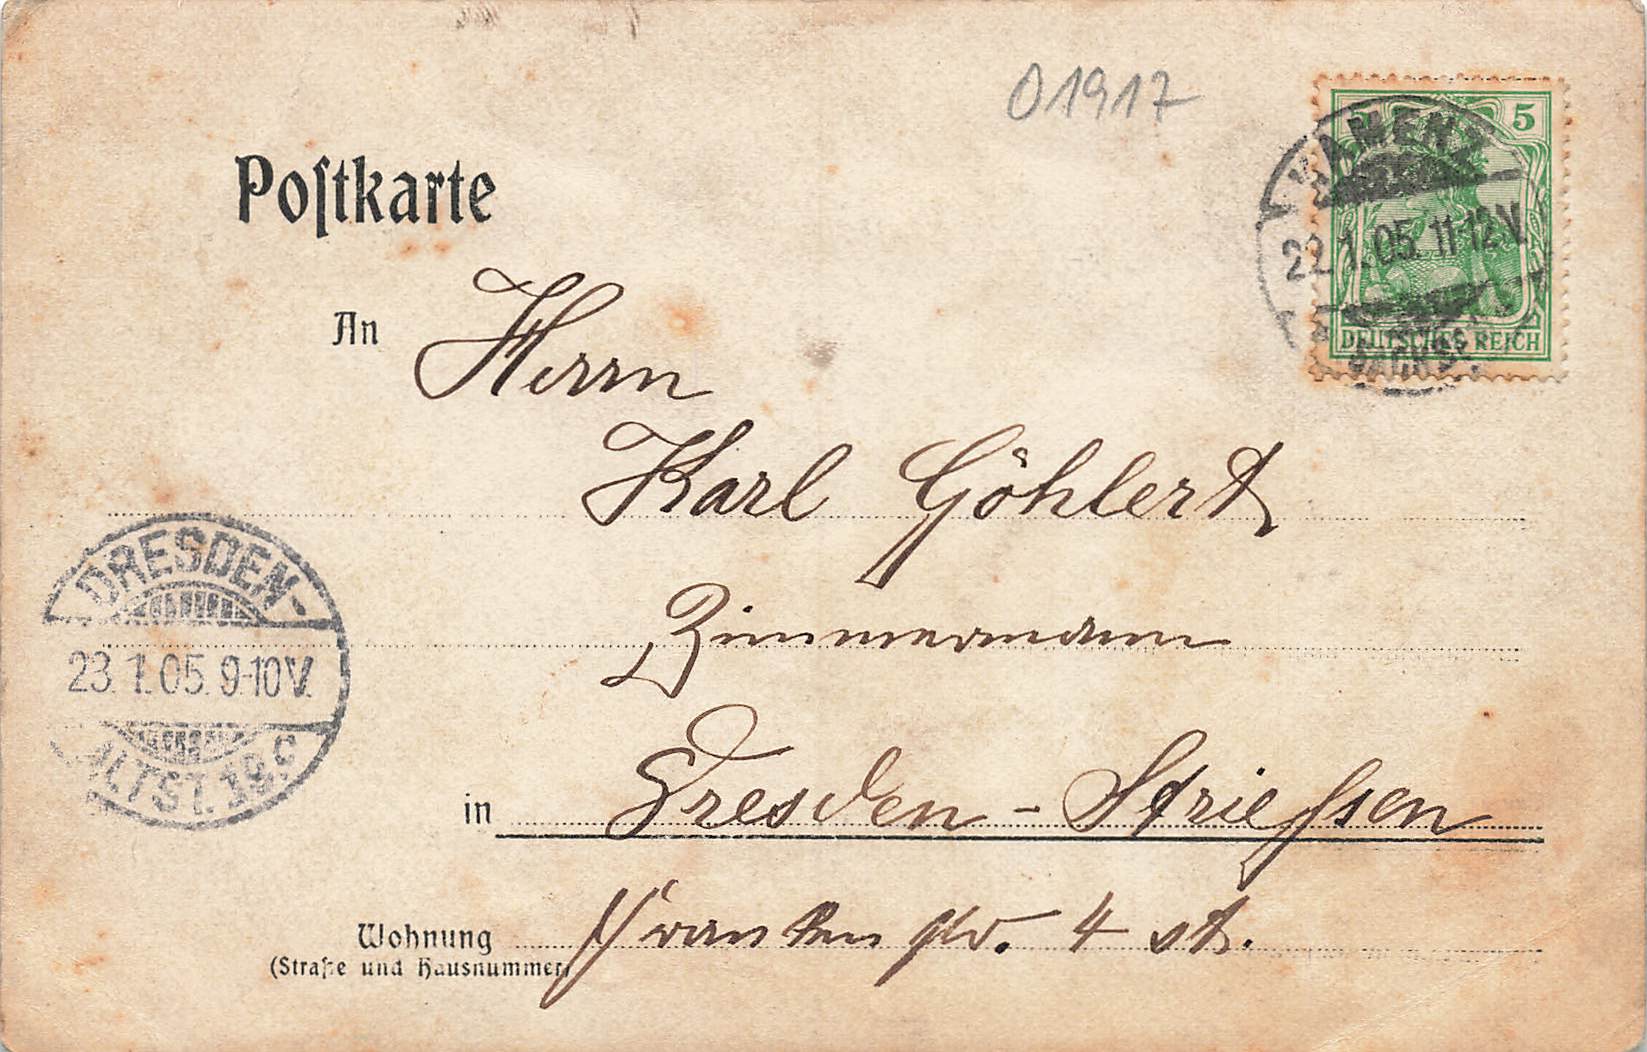 01917
5
KAMENZ
22.1.05.11-12V.
SACHSEN
DEUTSCHES REICH
Postkarte
An Herrn
Karl Göhlert
Zimmermann
in Dresden - Strießen
Wohnung
(Straße und Hausnummer)
4 st.
DRESDEN-
23.1.05.9-10V.
ALTST.19.c